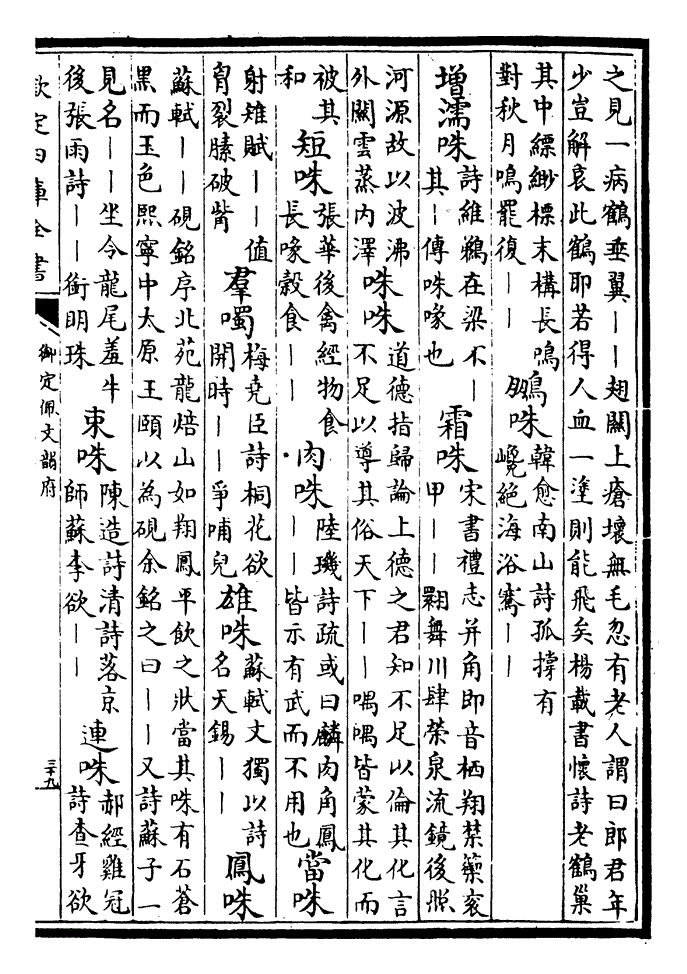 之見一病鶴垂翼――翅關上瘡壞無毛忽有老人謂曰郎君年
少豈解哀此鶴耶若得人血一塗則能飛矣楊載書懷詩老鶴巢
其中縹緲標末構長鳴
對秋月鳴罷復――
鵬咮
韓愈南山詩孤撐有
巉絕海浴褰――
增濡咮
詩維鵜在梁不―
其―傳咮喙也
霜咮
宋書禮志并角即音栖翔禁籞袞
甲――翾舞川肆榮泉流鏡後照
河源故以波沸
外關雲蒸内澤
咮咮
道德指歸論上德之君知不足以倫其化言
不足以導其俗天下――喁喁皆蒙其化而
被其
和
短咮
張華後禽經物食
長喙穀食――
肉咮
陸璣詩疏或曰麟肉角鳳
――皆示有武而不用也
當咮
射雉賦――值
胷裂膆破觜
羣噣
梅堯臣詩桐花欲
開時――爭哺兒
雄咮
蘇軾文獨以詩
名天錫――
鳳咮
蘇軾――硯銘序北苑龍焙山如翔鳳平飲之狀當其咮有石蒼
黑而玉色熙寧中太原王頤以為硯余銘之曰――又詩蘇子一
見名――坐令龍尾羞牛
後張雨詩――銜明珠
東咮
陳造詩清詩落京
師蘇李欲――
連咮
郝經雞冠
詩查牙欲
欽定四庫全書
御定佩文韻府
三十九